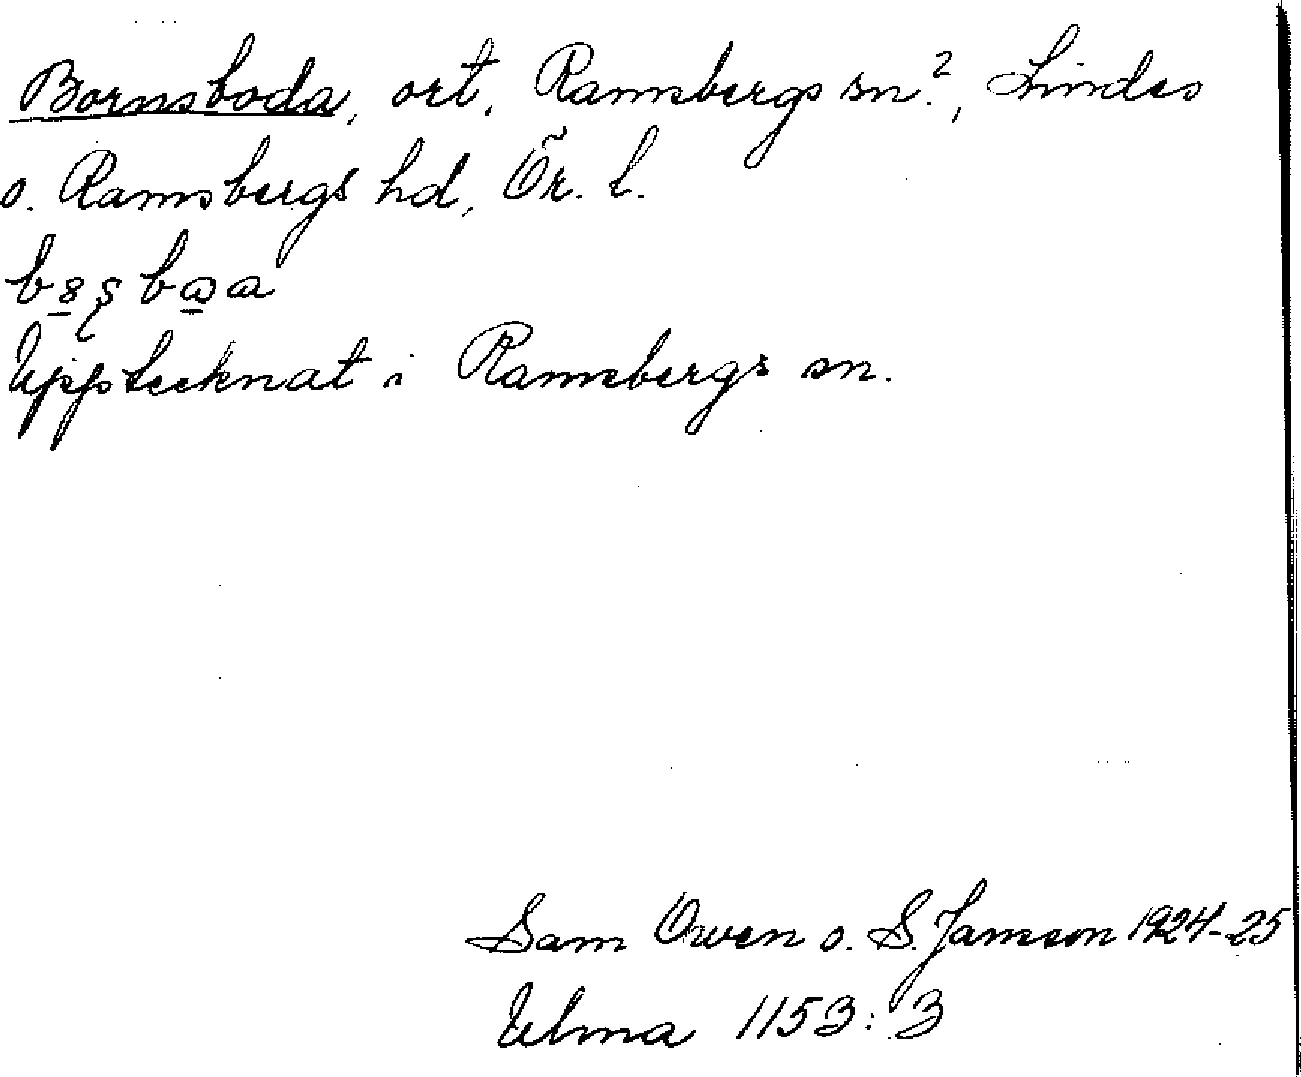 Bornsboda, ort, Ramsbergs sn.?, Lindes
o. Ramsbergs hd, Ör. l.
Upptecknat i Ramsbergs sn.
Sam Owen o. S. Jansson 1924-25
Ulma 1153:3